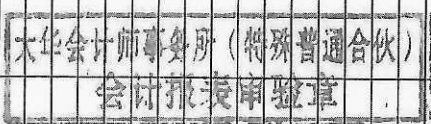 大华会计师事务所（特殊普通合伙）
会计报表审验章